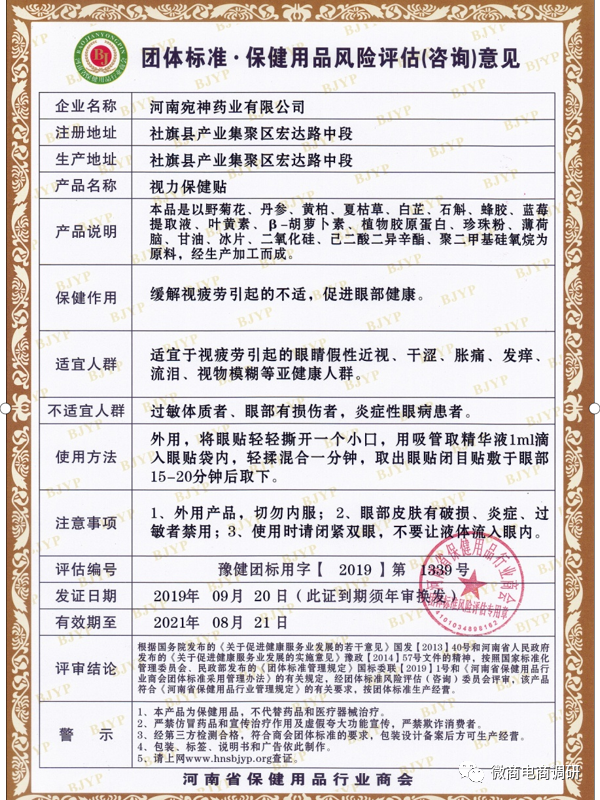 BAOJIANYONGPIN
BJ
团体标准·保健用品风险评估(咨询)意见
企业名称 河南宛神药业有限公司
注册地址 社旗县产业集聚区宏达路中段
生产地址 社旗县产业集聚区宏达路中段
产品名称 视力保健贴
产品说明
本品是以野菊花、丹参、黄柏、夏枯草、白芷、石斛、蜂胶、蓝莓
提取液、叶黄素、β-胡萝卜素、植物胶原蛋白、珍珠粉、薄荷
脑、甘油、冰片、二氧化硅、己二酸二异辛酯、聚二甲基硅氧烷为
原料，经生产加工而成。
保健作用 缓解视疲劳引起的不适，促进眼部健康。
适宜人群
适宜于视疲劳引起的眼睛假性近视、干涩、胀痛、发痒、
流泪、视物模糊等亚健康人群。
不适宜人群 过敏体质者、眼部有损伤者，炎症性眼病患者。
使用方法
外用，将眼贴轻轻撕开一个小口，用吸管取精华液1ml滴
入眼贴袋内，轻揉混合一分钟，取出眼贴闭目贴敷于眼部
15-20分钟后取下。
注意事项
1、外用产品，切勿内服；2、眼部皮肤有破损、炎症、过
敏者禁用；3、使用时请闭紧双眼，不要让液体流入眼内。
评估编号 豫健团标用字【 2019 】第 1339 号
发证日期 2019年 09月 20日（此证到期须年审换发）
有效期至 2021年 08月 21日
河南省保健用品行业商会
团体标准风险评估专用章
评审结论
根据国务院发布的《关于促进健康服务业发展的若干意见》国发【2013】40号和河南省人民政府
发布的《关于促进健康服务业发展的实施意见》豫政【2014】57号文件的精神，按照国家标准化
管理委员会、民政部发布的《团体标准管理规定》国标委联【2019】1号和《河南省保健用品行
业商会团体标准采用管理办法》的有关规定，经团体标准风险评估（咨询）委员评审，该产品
符合《河南省保健用品行业管理规定》的有关要求，按团体标准生产经营。
警 示
1、本产品为保健用品，不代替药品和医疗器械治疗。
2、严禁仿冒药品和宣传治疗作用及虚假夸大功能宣传，严禁欺诈消费者。
3、经第三方检测合格，符合商会团体标准的要求，包装设计备案后方可生产经营。
4、包装、标签、说明书和广告依此制作。
5、请上网www.hnsbjyp.org查证。
河南省保健用品行业商会
微商电商调研